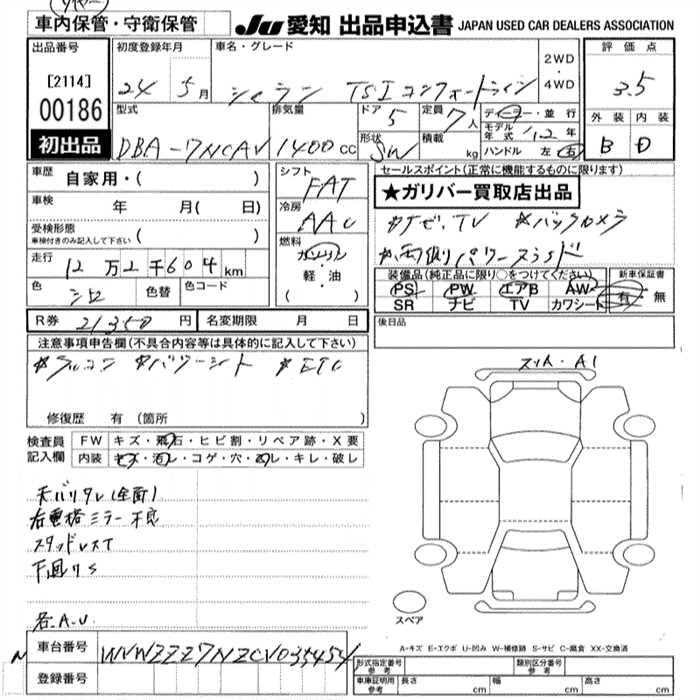 車内保管・守衛保管
JU 愛知 出品申込書 JAPAN USED CAR DEALERS ASSOCIATION
出品番号
[2114]
00186
初出品
初度登録年月
24 5月
車名・グレード
シャラン TSI コンフォートライン
2WD
4WD
評価点
3.5
外装 内装
B D
型式
DBA-7NCAV
排気量
1400 cc
ドア
5
形状
SW
定員
7人
積載
kg
ディーラー・並行
モデル年式 '12年
ハンドル 左 右
車歴
自家用・( )
車検
年 月(日)
受検形態
車検付きのみ記入して下さい ( )
走行
12万2千604km
色
シロ
色替
色コード
シフト
FAT
冷房
AAC
燃料
ガソリン
軽・油
( ・ )
セールスポイント(正常に機能するものに限ります)
★ガリバー買取店出品
*ナビ、TV *バックカメラ
*両側パワースライド
装備品(純正品に限り○をつけてください)
PS PW エアB AW
SR ナビ TV カワシート
新車保証書
有・無
R券 21350円
名変期限 月 日
後日品
注意事項申告欄(不具合内容等は具体的に記入して下さい)
*アルコン *パワーシート *ETC
修復歴 有(箇所 )
検査員
記入欄
FW キズ・飛石・ヒビ割・リペア跡・X要
内装 キズ・汚レ・コゲ・穴・凹レ・キレ・破レ
天バリタレ(全面)
右電格ミラー不良
スタッドレスT
下廻りS
各A.U
スリA・A1
スペア
A-キズ E-エクボ U-凹み W-補修跡 S-サビ C-腐食 XX-交換済
車台番号 WVWZZZ7NZCV035454
登録番号
形式指定番号
参考
類別区分番号
参考
車庫証明用
参考
長さ cm
幅 cm
高さ cm